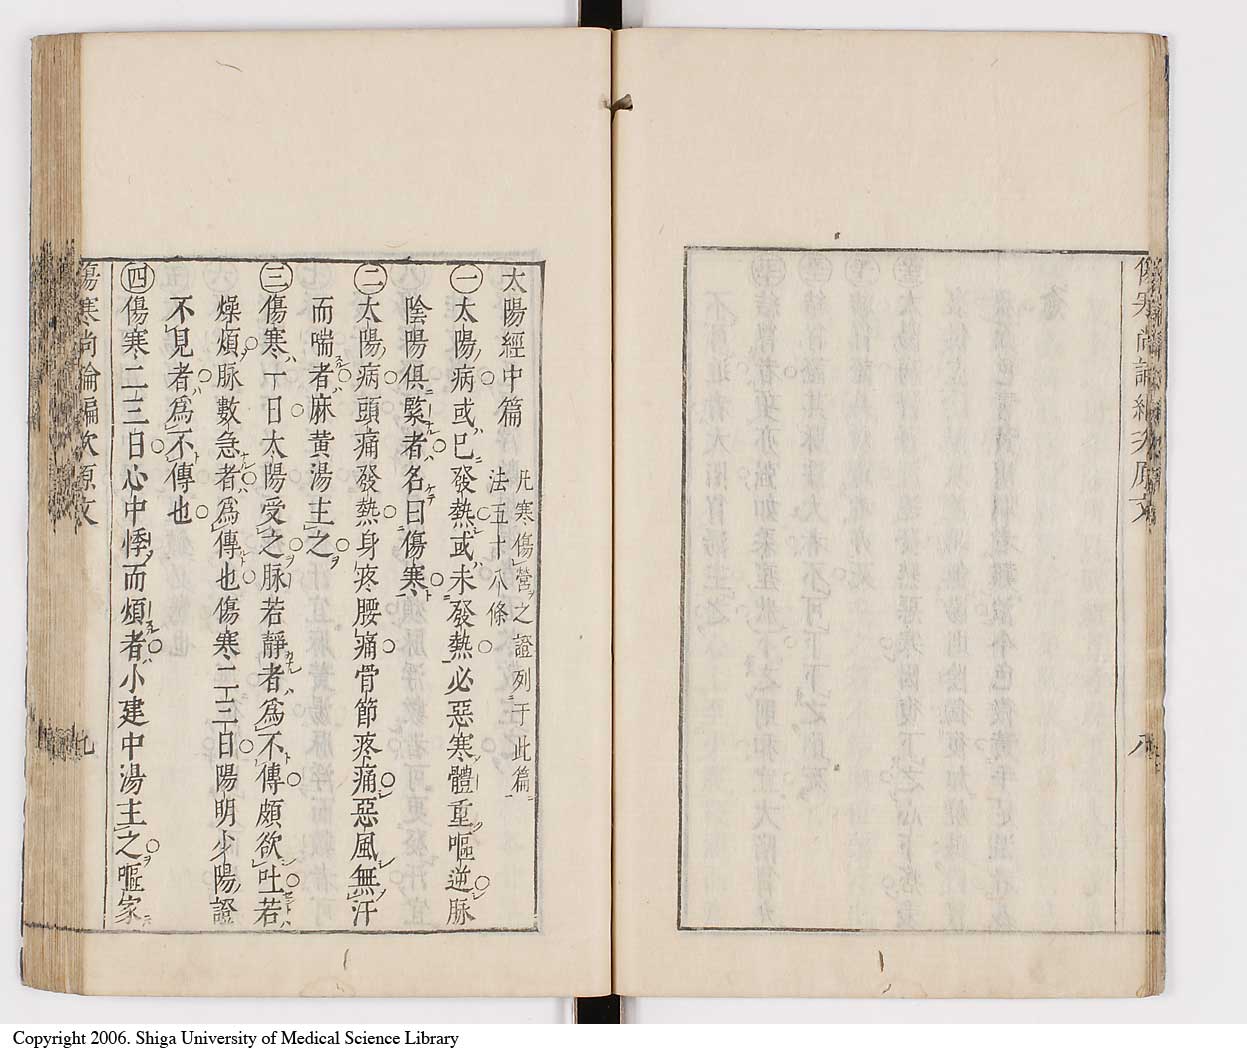 傷寒尚論編次原文
八
太陽經中篇
凡寒傷營之證列于此篇
法五十八條
㊀太陽病或已發熱或未發熱必惡寒體重嘔逆脈
陰陽俱緊者名曰傷寒
㊁太陽病頭痛發熱身疼腰痛骨節疼痛惡風無汗
而喘者麻黃湯主之
㊂傷寒一日太陽受之脈若靜者爲不傳頗欲吐若
燥煩脈數急者爲傳也傷寒二三日陽明少陽證
不見者爲不傳也
㊃傷寒二三日心中悸而煩者小建中湯主之嘔家
傷寒尚論編次原文
九
Copyright 2006. Shiga University of Medical Science Library